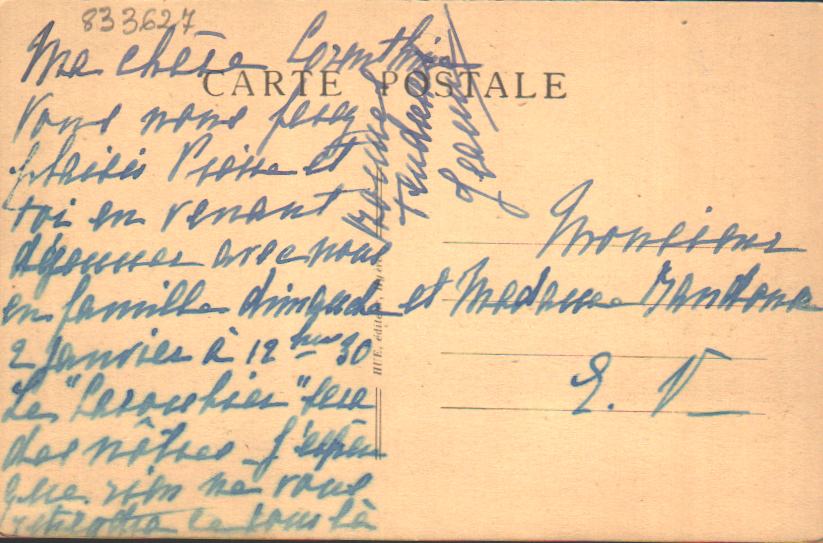 833627
CARTE POSTALE
Ma chère
Vous nous ferez
plaisir Pierre et
toi en venant
déjeuner avec nous
en famille dimanche
2 janvier à 12 hres 30
Le " " sera
des nôtres. J'espère
que rien ne vous
retiendra ce jour là
Tendresses
Monsieur
et Madame
E. V
HUE, édit